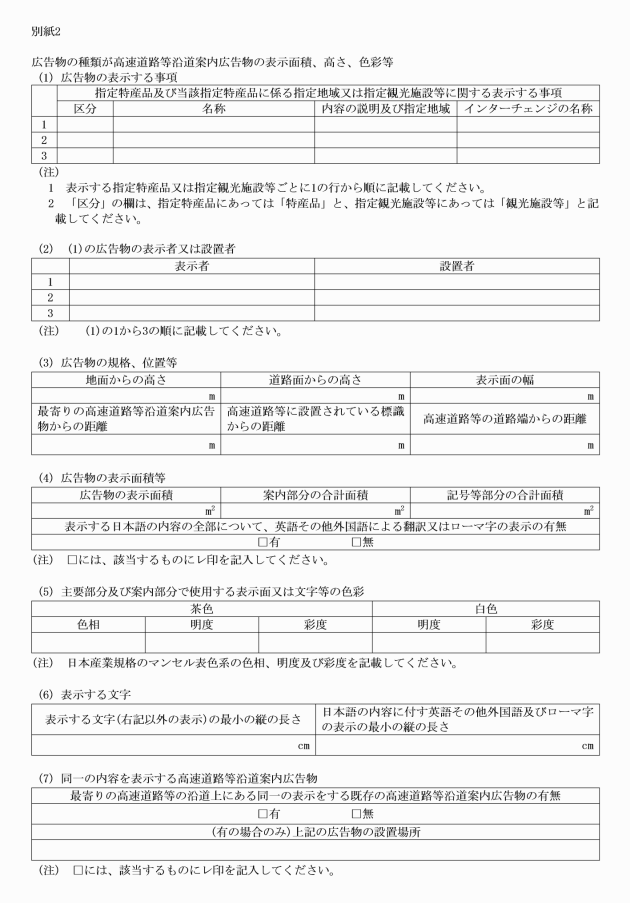 別紙2
広告物の種類が高速道路等沿道案内広告物の表示面積、高さ、色彩等
(1) 広告物の表示する事項
指定特産品及び当該指定特産品に係る指定地域又は指定観光施設等に関する表示する事項
区分 名称 内容の説明及び指定地域 インターチェンジの名称
1
2
3
(注)
1 表示する指定特産品又は指定観光施設等ごとに1の行から順に記載してください。
2 「区分」の欄は、指定特産品にあっては「特産品」と、指定観光施設等にあっては「観光施設等」と記
載してください。
(2) (1)の広告物の表示者又は設置者
表示者 設置者
1
2
3
(注) (1)の1から3の順に記載してください。
(3) 広告物の規格、位置等
地面からの高さ 道路面からの高さ 表示面の幅
m m m
最寄りの高速道路等沿道案内広告 高速道路等に設置されている標識 高速道路等の道路端からの距離
物からの距離 からの距離
m m m
(4) 広告物の表示面積等
広告物の表示面積 案内部分の合計面積 記号等部分の合計面積
㎡ ㎡ ㎡
表示する日本語の内容の全部について、英語その他外国語による翻訳又はローマ字の表示の有無
□有 □無
(注) □には、該当するものにレ印を記入してください。
(5) 主要部分及び案内部分で使用する表示面又は文字等の色彩
茶色 白色
色相 明度 彩度 明度 彩度
(注) 日本産業規格のマンセル表色系の色相、明度及び彩度を記載してください。
(6) 表示する文字
表示する文字(右記以外の表示)の最小の縦の長さ 日本語の内容に付す英語その他外国語及びローマ字
の表示の最小の縦の長さ
cm cm
(7) 同一の内容を表示する高速道路等沿道案内広告物
最寄りの高速道路等の沿道上にある同一の表示をする既存の高速道路等沿道案内広告物の有無
□有 □無
(有の場合のみ)上記の広告物の設置場所
(注) □には、該当するものにレ印を記入してください。